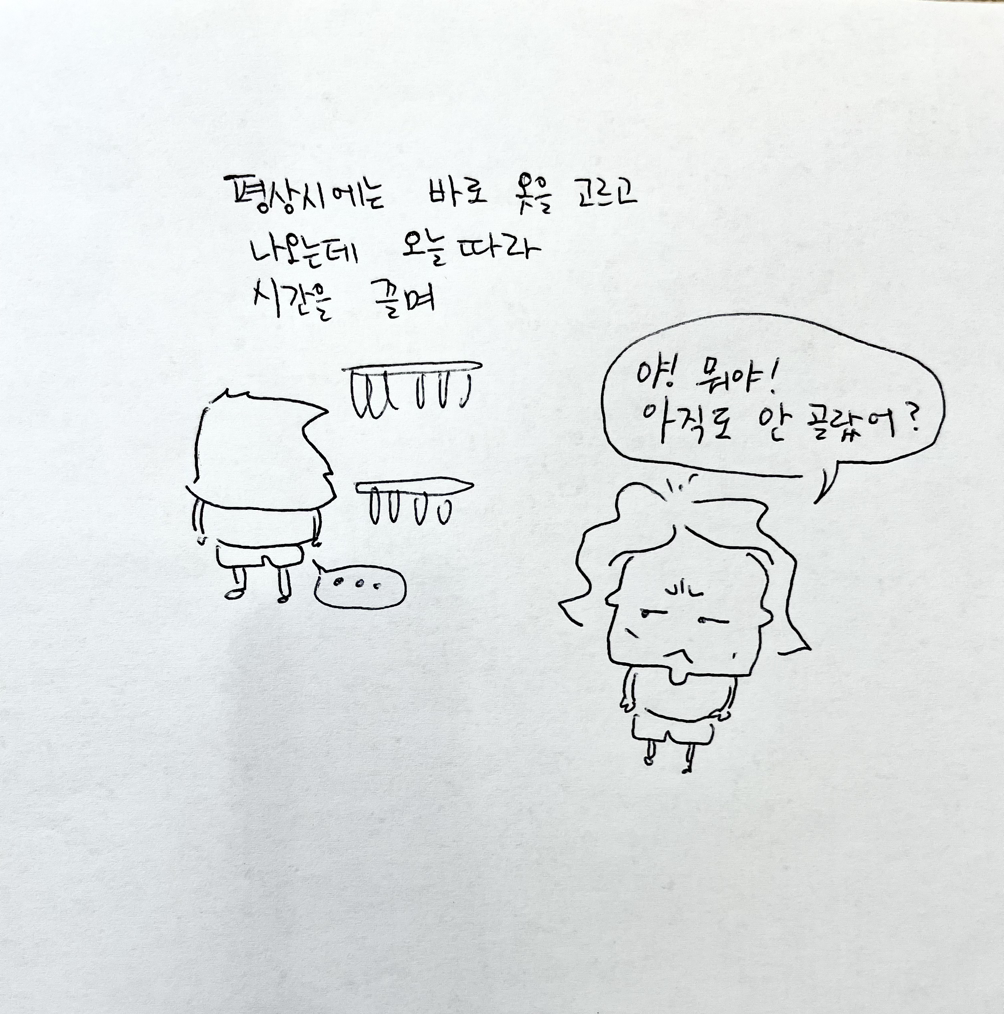 평상시에는 바로 옷을 고르고
나오는데 오늘따라
시간을 끌며
야! 뭐야!
아직도 안 골랐어?
...